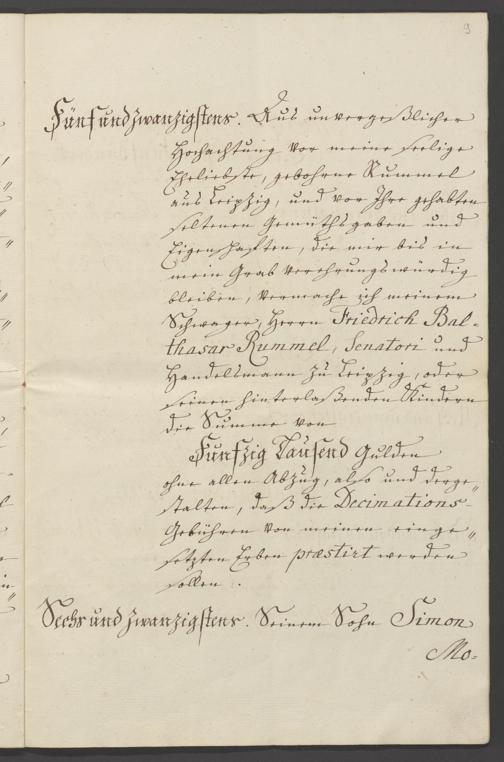 9
Fünf und zwanzigstens. Aus unvergeßlicher
Hochachtung vor meine seelige
Eheliebste, gebohrne Rummel
aus Leipzig, und vor Ihre gehabten
seltenen Gemüthsgaben und
Eigenschafften, die mir bis in
mein Grab verehrungswürdig
bleiben, vermache ich meinem
Schwager, Herrn Friedrich Bal-
thasar Rummel, Senatori und
Handelsmann zu Leipzig, oder
seinen hinterlaßenden Kindern
die Summe von
Funfzig Tausend Gulden
ohne allen Abzug, also und derge-
stalten, daß die Decimations-
Gebühren von meinen einge-
setzten Erben præstirt werden
sollen.
Sechs und zwanzigstens. Seinem Sohn Simon
Mo-